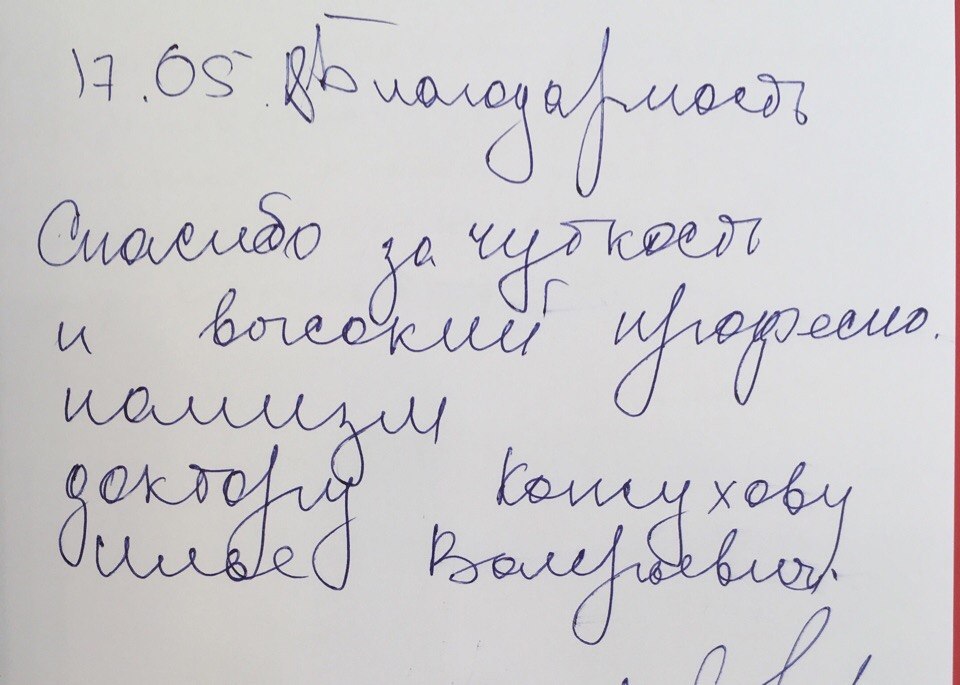 17.05. Благодарность
Спасибо за чуткость
и высокий професио.
нализм
доктору Кожухову
Илье Валерьевич.